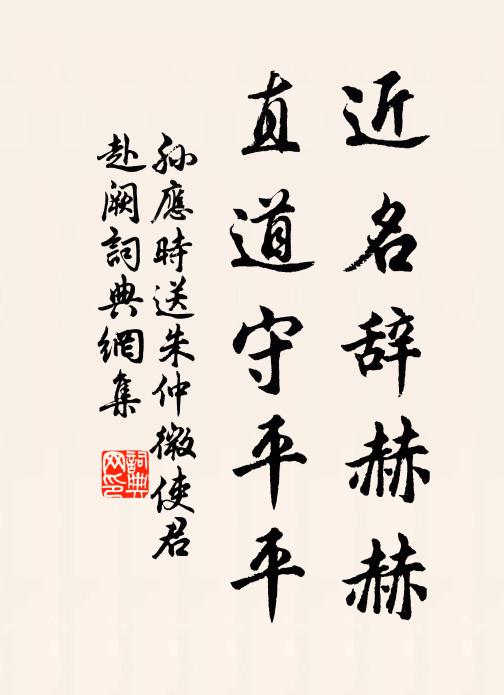 近名辞赫赫
直道守平平
孙應時送朱仲微使君
赴阙詞典網集
詞典
网印